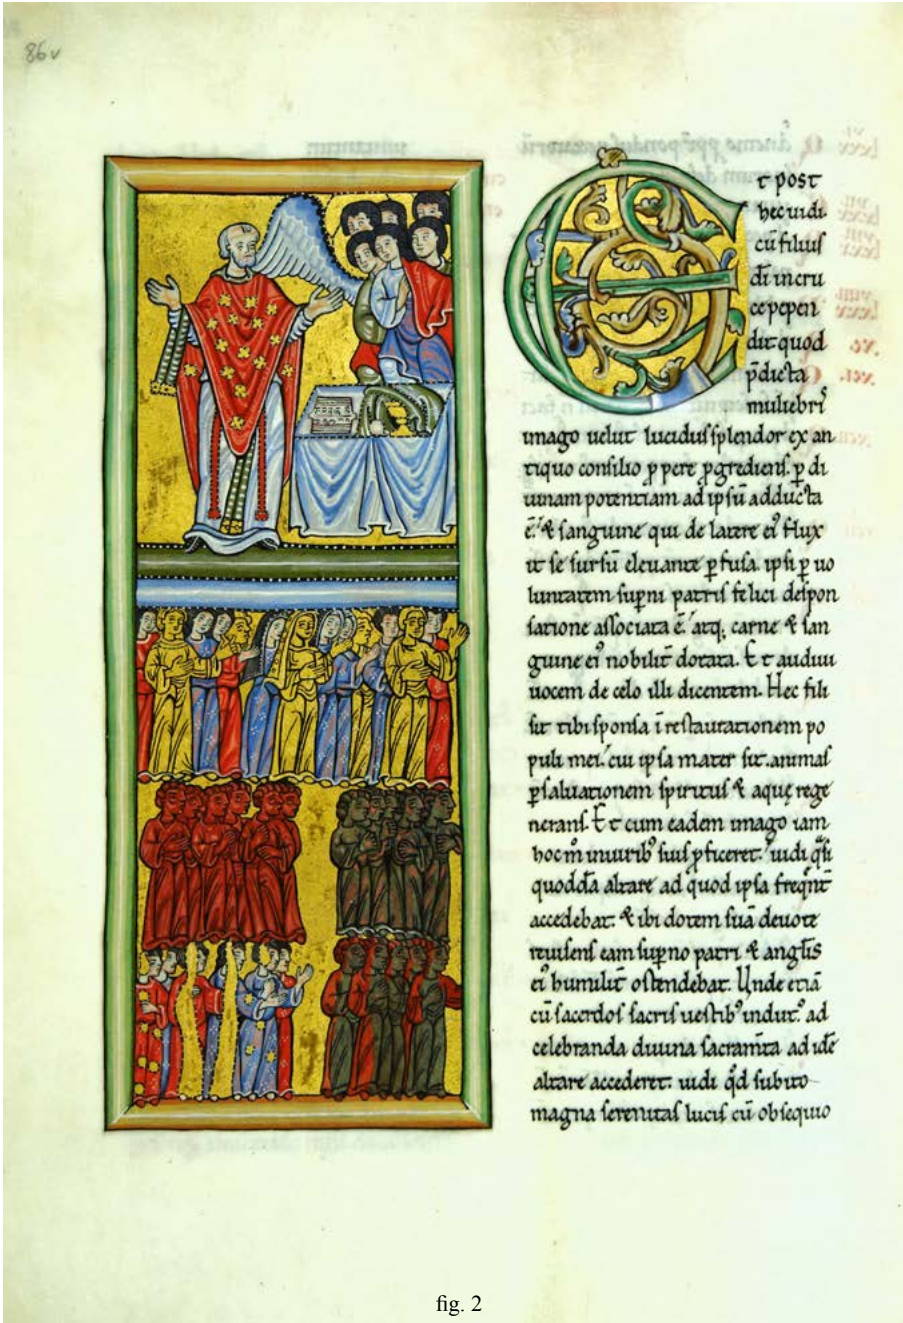 86v
Et post
hec uidi
cū filius
di̅ in cru
ce pepen
dit quod
p̄dicta
muliebrı̕
imago uelut lucidus splendor ex an
tiquo consilio ꝓpere ꝓgrediens. ꝑ di
uinam potentiam ad ipsū adducta
ē. & sanguine qui de latere eiꝰ flux
it se sursū eleuante ꝑfusa. ipsi ꝑ uo
luntatem suꝑni patris felici despon
satione associata ē. atq; carne & san
guine eiꝰ nobilit̄ dotata. Et audiui
uocem de celo illi dicentem. Hec fili
sit tibi sponsa ī restaurationem po
puli mei. cui ipsa mater sit. animas
ꝑ saluationem spiritus & aquę rege
nerans. Et cum eadem imago iam
hoc m̊ in uirib; suis ꝓficeret. uidi q̄si
quodda altare ad quod ipsa freqn̄t̄
accedebat. & ibi dotem suā deuote
reuisens eam suꝑno patri & angl̄is
eiꝰ humilit̄ ostendebat. Unde etiā
cū sacerdos sacris uestibꝰ indutꝰ ad
celebranda diuina sacram̄ta ad idē
altare accederet. uidi qd̄ subito
magna serenitas lucis cū obsequio
fig. 2